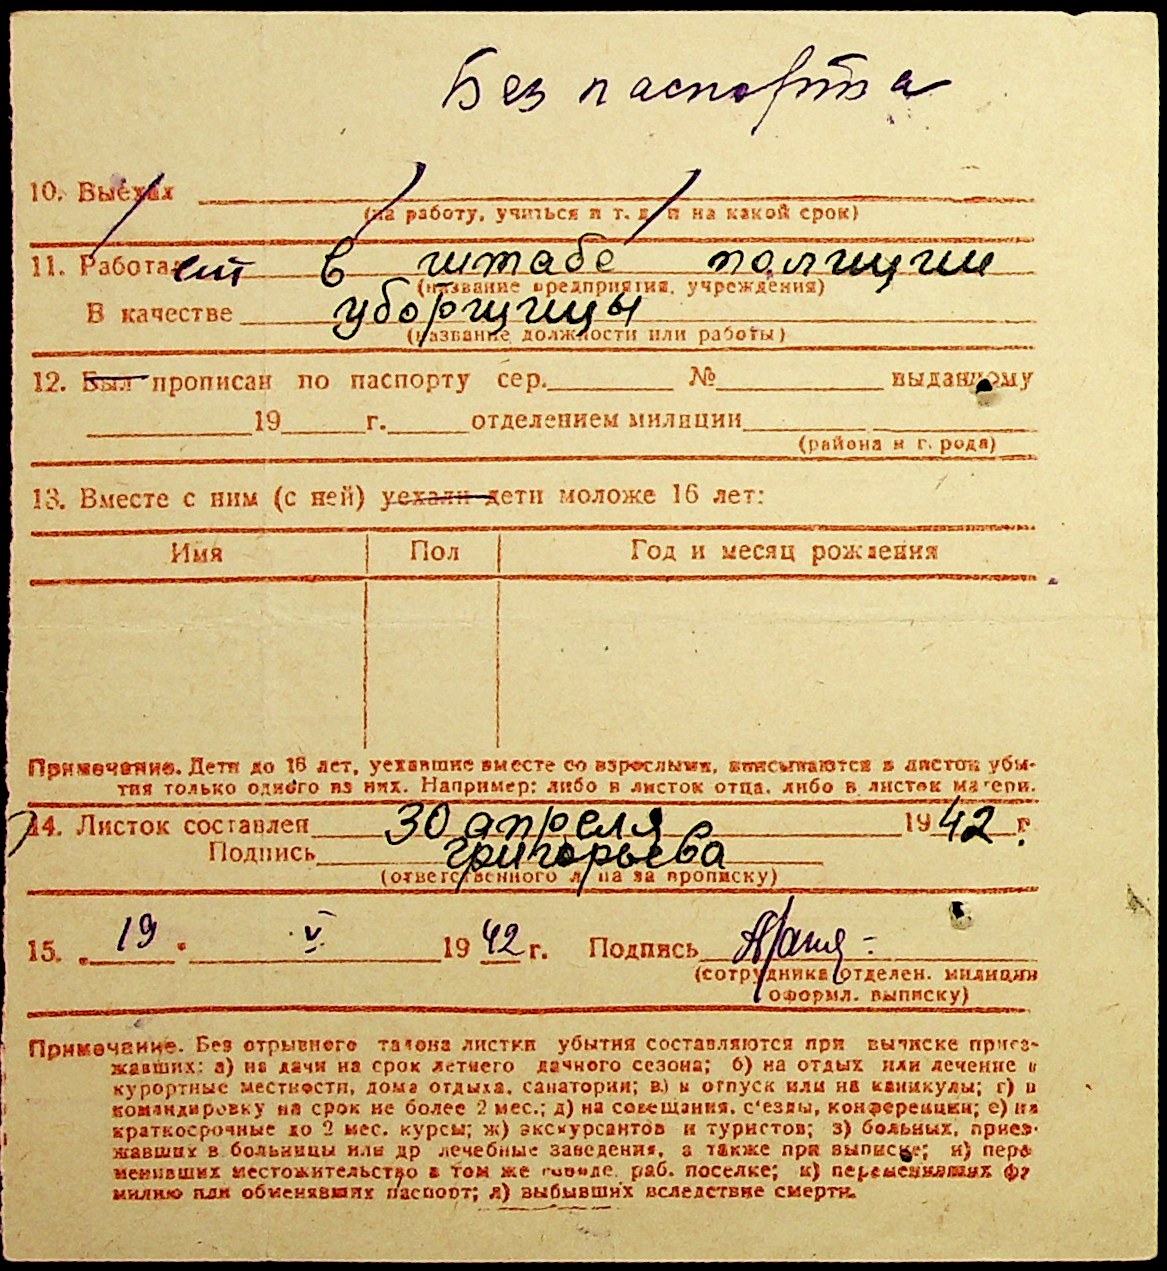 Без паспорта
10. Выехал
(на работу, учиться и т. д. и на какой срок)
11. Работает в штабе полиции
(название предприятия, учреждения)
В качестве уборщицы
(название должности или работы)
12. Был прописан по паспорту сер. № выданному
19 г. отделением милиции
(района и г. рода)
13. Вместе с ним (с ней) уехали дети моложе 16 лет:
Имя Пол Год и месяц рождения
Примечание. Дети до 16 лет, уехавшие вместе со взрослыми, вписываются в листок убы-
тия только одного из них. Например: либо в листок отца, либо в листок матери.
14. Листок составлен 30 апреля 1942 г.
Подпись Григорьева
(ответственного лица за прописку)
15. 19 V 1942 г. Подпись
(сотрудника отделен. милиции
оформл. выписку)
Примечание. Без отрывного талона листки убытия составляются при выписке приез-
жавших: а) на дачи на срок летнего дачного сезона; б) на отдых или лечение в
курортные местности, дома отдыха, санатории; в) в отпуск или на каникулы; г) в
командировку на срок не более 2 мес.; д) на совещания, с'езды, конференции; е) на
краткосрочные до 2 мес. курсы; ж) экскурсантов и туристов; з) больных, приез-
жавших в больницы или др лечебные заведения, а также при выписке; и) пере
менивших местожительство в том же городе, раб. поселке; к) переменивших фа
милию или обменявших паспорт; л) выбывших вследствие смерти.